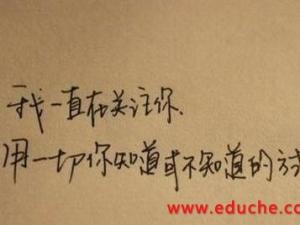 我一直在关注你、
用一切你知道或不知道的方式
www.eduche.com